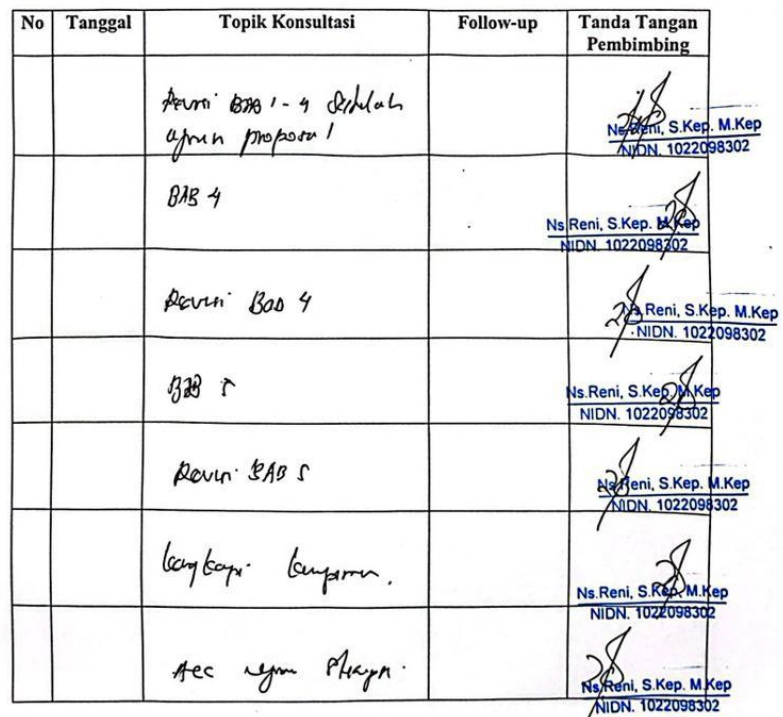 No Tanggal Topik Konsultasi Follow-up Tanda Tangan Pembimbing
Revisi BAB 1-4 Setelah
ujian proposal
Ns.Reni, S.Kep. M.Kep
NIDN. 1022098302
BAB 4
Ns.Reni, S.Kep. M.Kep
NIDN. 1022098302
Revisi Bab 4
Ns.Reni, S.Kep. M.Kep
NIDN. 1022098302
BAB 5
Ns.Reni, S.Kep. M.Kep
NIDN. 1022098302
Revisi BAB 5
Ns.Reni, S.Kep. M.Kep
NIDN. 1022098302
Lengkapi lampiran.
Ns.Reni, S.Kep. M.Kep
NIDN. 1022098302
Acc ujian
Ns.Reni, S.Kep. M.Kep
NIDN. 1022098302